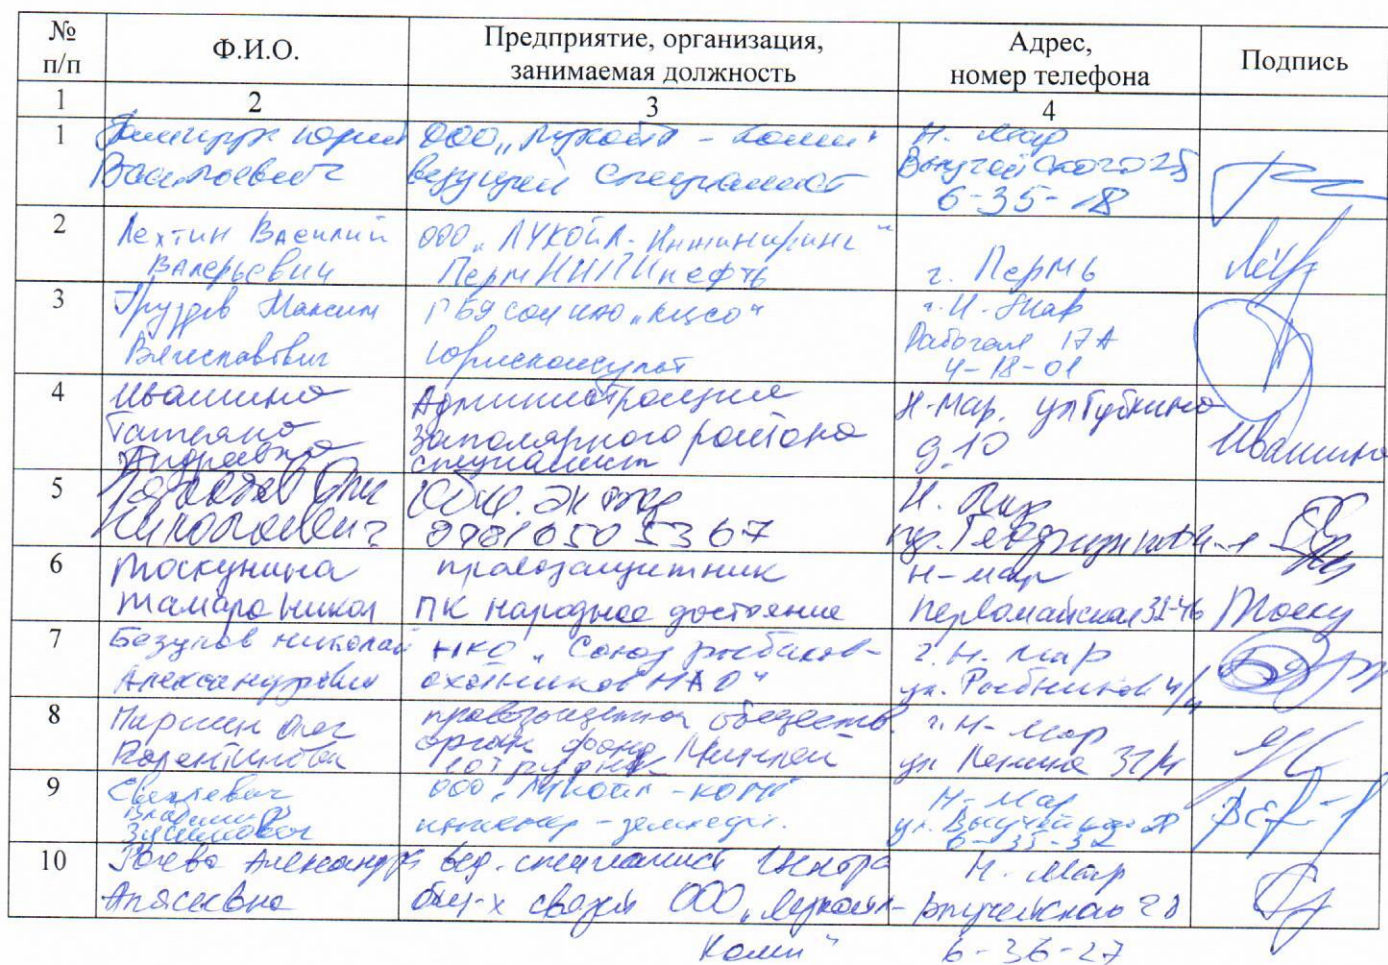 № п/п
Ф.И.О.
Предприятие, организация, занимаемая должность
Адрес, номер телефона
Подпись
1
2
3
4
1
Юрий
Васильевич
ООО „Лукойл - Коми"
ведущий специалист
Н. Мар
Выучейского 28
6-35-18
2
Лехтин Василий
Валерьевич
ООО „ЛУКОЙЛ-Инжиниринг"
ПермНИПИнефть
г. Пермь
3
Груздев Максим
Вячеславович
ГБУ СОН НАО „КЦСО"
юрисконсульт
г. Н-Мар
Рабочая 17А
4-18-01
4
Ивашина
Татьяна
Андреевна
Администрация
Заполярного района
специалист
Н-Мар, ул Губкина
д. 10
Ивашина
5
Николаевич
89816505367
Н. Мар
6
Москунина
Тамара Никол
правозащитник
ПК народное достояние
Н-Мар
Первомайская 32-46
7
Безумов Николай
Александрович
НКО „Союз рыбаков-
охотников НАО"
г. Н. Мар
ул. Рыбников 4/4
8
Олег
г. Н-Мар
ул Ленина
9
Владимир
ООО „Лукойл - Коми"
инженер - землеустр.
Н-Мар
ул. Выучейского
6-35-32
10
Александра
Алексеевна
вед. специалист Центра
общ-х связей ООО „Лукойл-
Коми"
Н. Мар
Выучейского 28
6-36-27